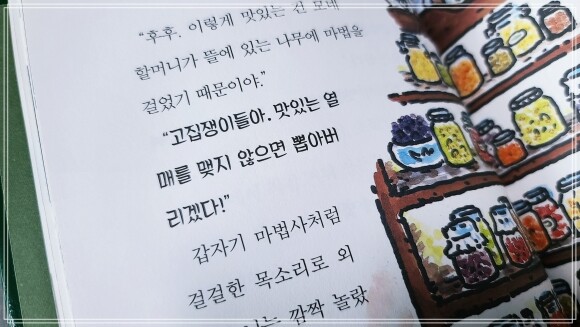 “후후. 이렇게 맛있는 건 모네
할머니가 뜰에 있는 나무에 마법을
걸었기 때문이야.”
“고집쟁이들아. 맛있는 열
매를 맺지 않으면 뽑아버
리겠다!”
갑자기 마법사처럼
걸걸한 목소리로 외
깜짝 놀랐